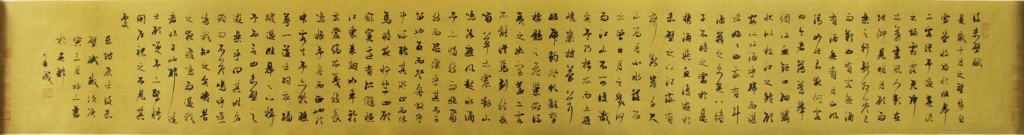 後赤壁賦
是歲十月之望步自
雪堂將歸于臨皋
二客從予過黃泥
之坂霜露既降
木葉盡脫人影在
地仰見明月顧而樂
之行歌相答已而歎
曰有客無酒有酒
無肴月白風清
如此良夜何客
曰今者薄暮舉
網得魚巨口細鱗
狀似松江之鱸顧
安所得酒乎歸而謀
諸婦婦曰我有斗
酒藏之久矣以待
子不時之需於是
攜酒與魚復遊於
赤壁之下江流有
聲斷岸千尺
山高月小水落石
出曾日月之幾何
而江山不可復識
矣予乃攝衣而上
履巉巖披蒙茸
踞虎豹登虬龍攀
棲鶻之危巢俯馮
夷之幽宮蓋二客
不能從焉劃然長
嘯草木震動山
鳴谷應風起水涌
予亦悄然而悲肅
然而恐凜乎其不可
留也反而登舟放乎中
流聽其所止而休
焉時夜將半四顧
寂寥適有孤鶴橫
江東來翅如車輪
玄裳縞衣戛然長
鳴掠予舟而西也
須臾客去予亦就睡
夢一道士羽衣蹁
躚過臨皋之下揖
予而言曰赤壁之
遊樂乎問其姓名
俛而不答嗚呼噫
嘻我知之矣疇昔
之夜飛鳴而過我
者非子也耶道
士顧笑予亦驚寤
開戶視之不見其
處
東坡居士後赤
壁賦歲次庚
寅三月初三書
於吳郡